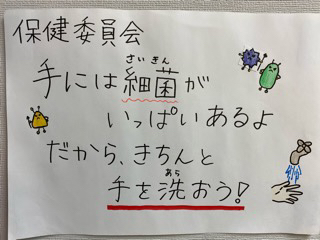 保健委員会
さいきん
手には細菌が
いっぱいあるよ
だから、きちんと
あら
手を洗おう!